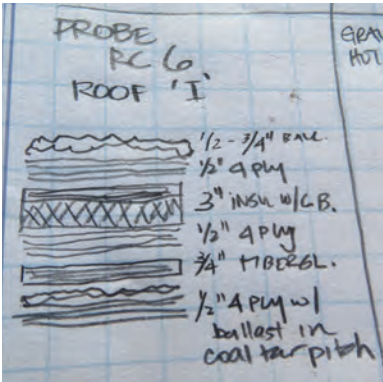 PROBE
RC 6
ROOF 'I'
1/2 - 3/4" BALL.
1/2" 4 PLY
3" INSU W/
1/2" 4 PLY
3/4" FIBERGL.
1/2" 4 PLY W/
ballast in
coal tar pitch
GRAV